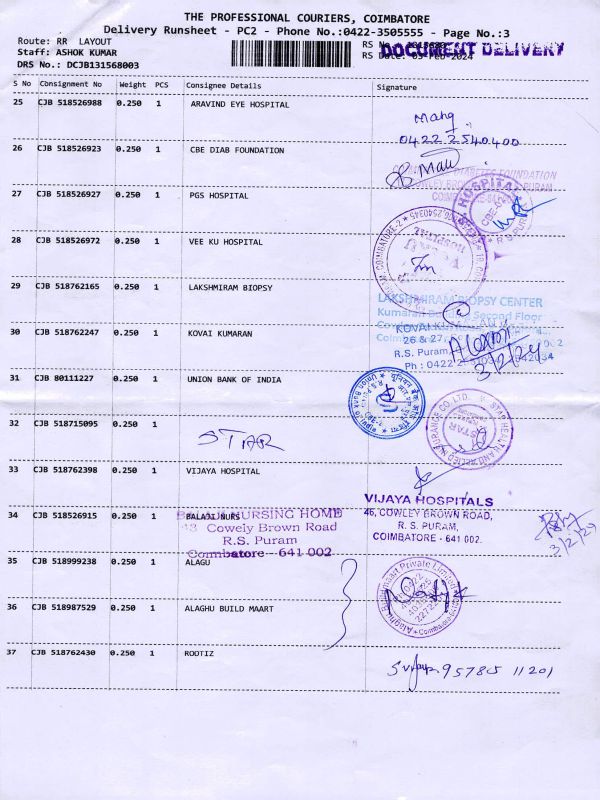 THE PROFESSIONAL COURIERS, COIMBATORE
Delivery Runsheet - PC2 - Phone No.:0422-3505555 - Page No.:3
Route: RR LAYOUT
Staff: ASHOK KUMAR
DRS No.: DCJB131568003
DOCUMENT DELIVERY
RS Date: 03-Feb-2024
S No Consignment No Weight PCS Consignee Details Signature
25 CJB 518526988 0.250 1 ARAVIND EYE HOSPITAL
0422 2540400
26 CJB 518526923 0.250 1 CBE DIAB FOUNDATION
27 CJB 518526927 0.250 1 PGS HOSPITAL
28 CJB 518526972 0.250 1 VEE KU HOSPITAL
29 CJB 518762165 0.250 1 LAKSHMIRAM BIOPSY
LAKSHMIRAM BIOPSY CENTER
30 CJB 518762247 0.250 1 KOVAI KUMARAN
3/2/24
31 CJB 80111227 0.250 1 UNION BANK OF INDIA
32 CJB 518715095 0.250 1
STAR
33 CJB 518762398 0.250 1 VIJAYA HOSPITAL
VIJAYA HOSPITALS
46, COWLEY BROWN ROAD,
R. S. PURAM,
COIMBATORE - 641 002.
34 CJB 518526915 0.250 1 BALAJI NURS
NURSING HOME
Cowely Brown Road
R.S. Puram
Coimbatore - 641 002
35 CJB 518999238 0.250 1 ALAGU
36 CJB 518987529 0.250 1 ALAGHU BUILD MAART
37 CJB 518762430 0.250 1 ROOTIZ
95785 11201